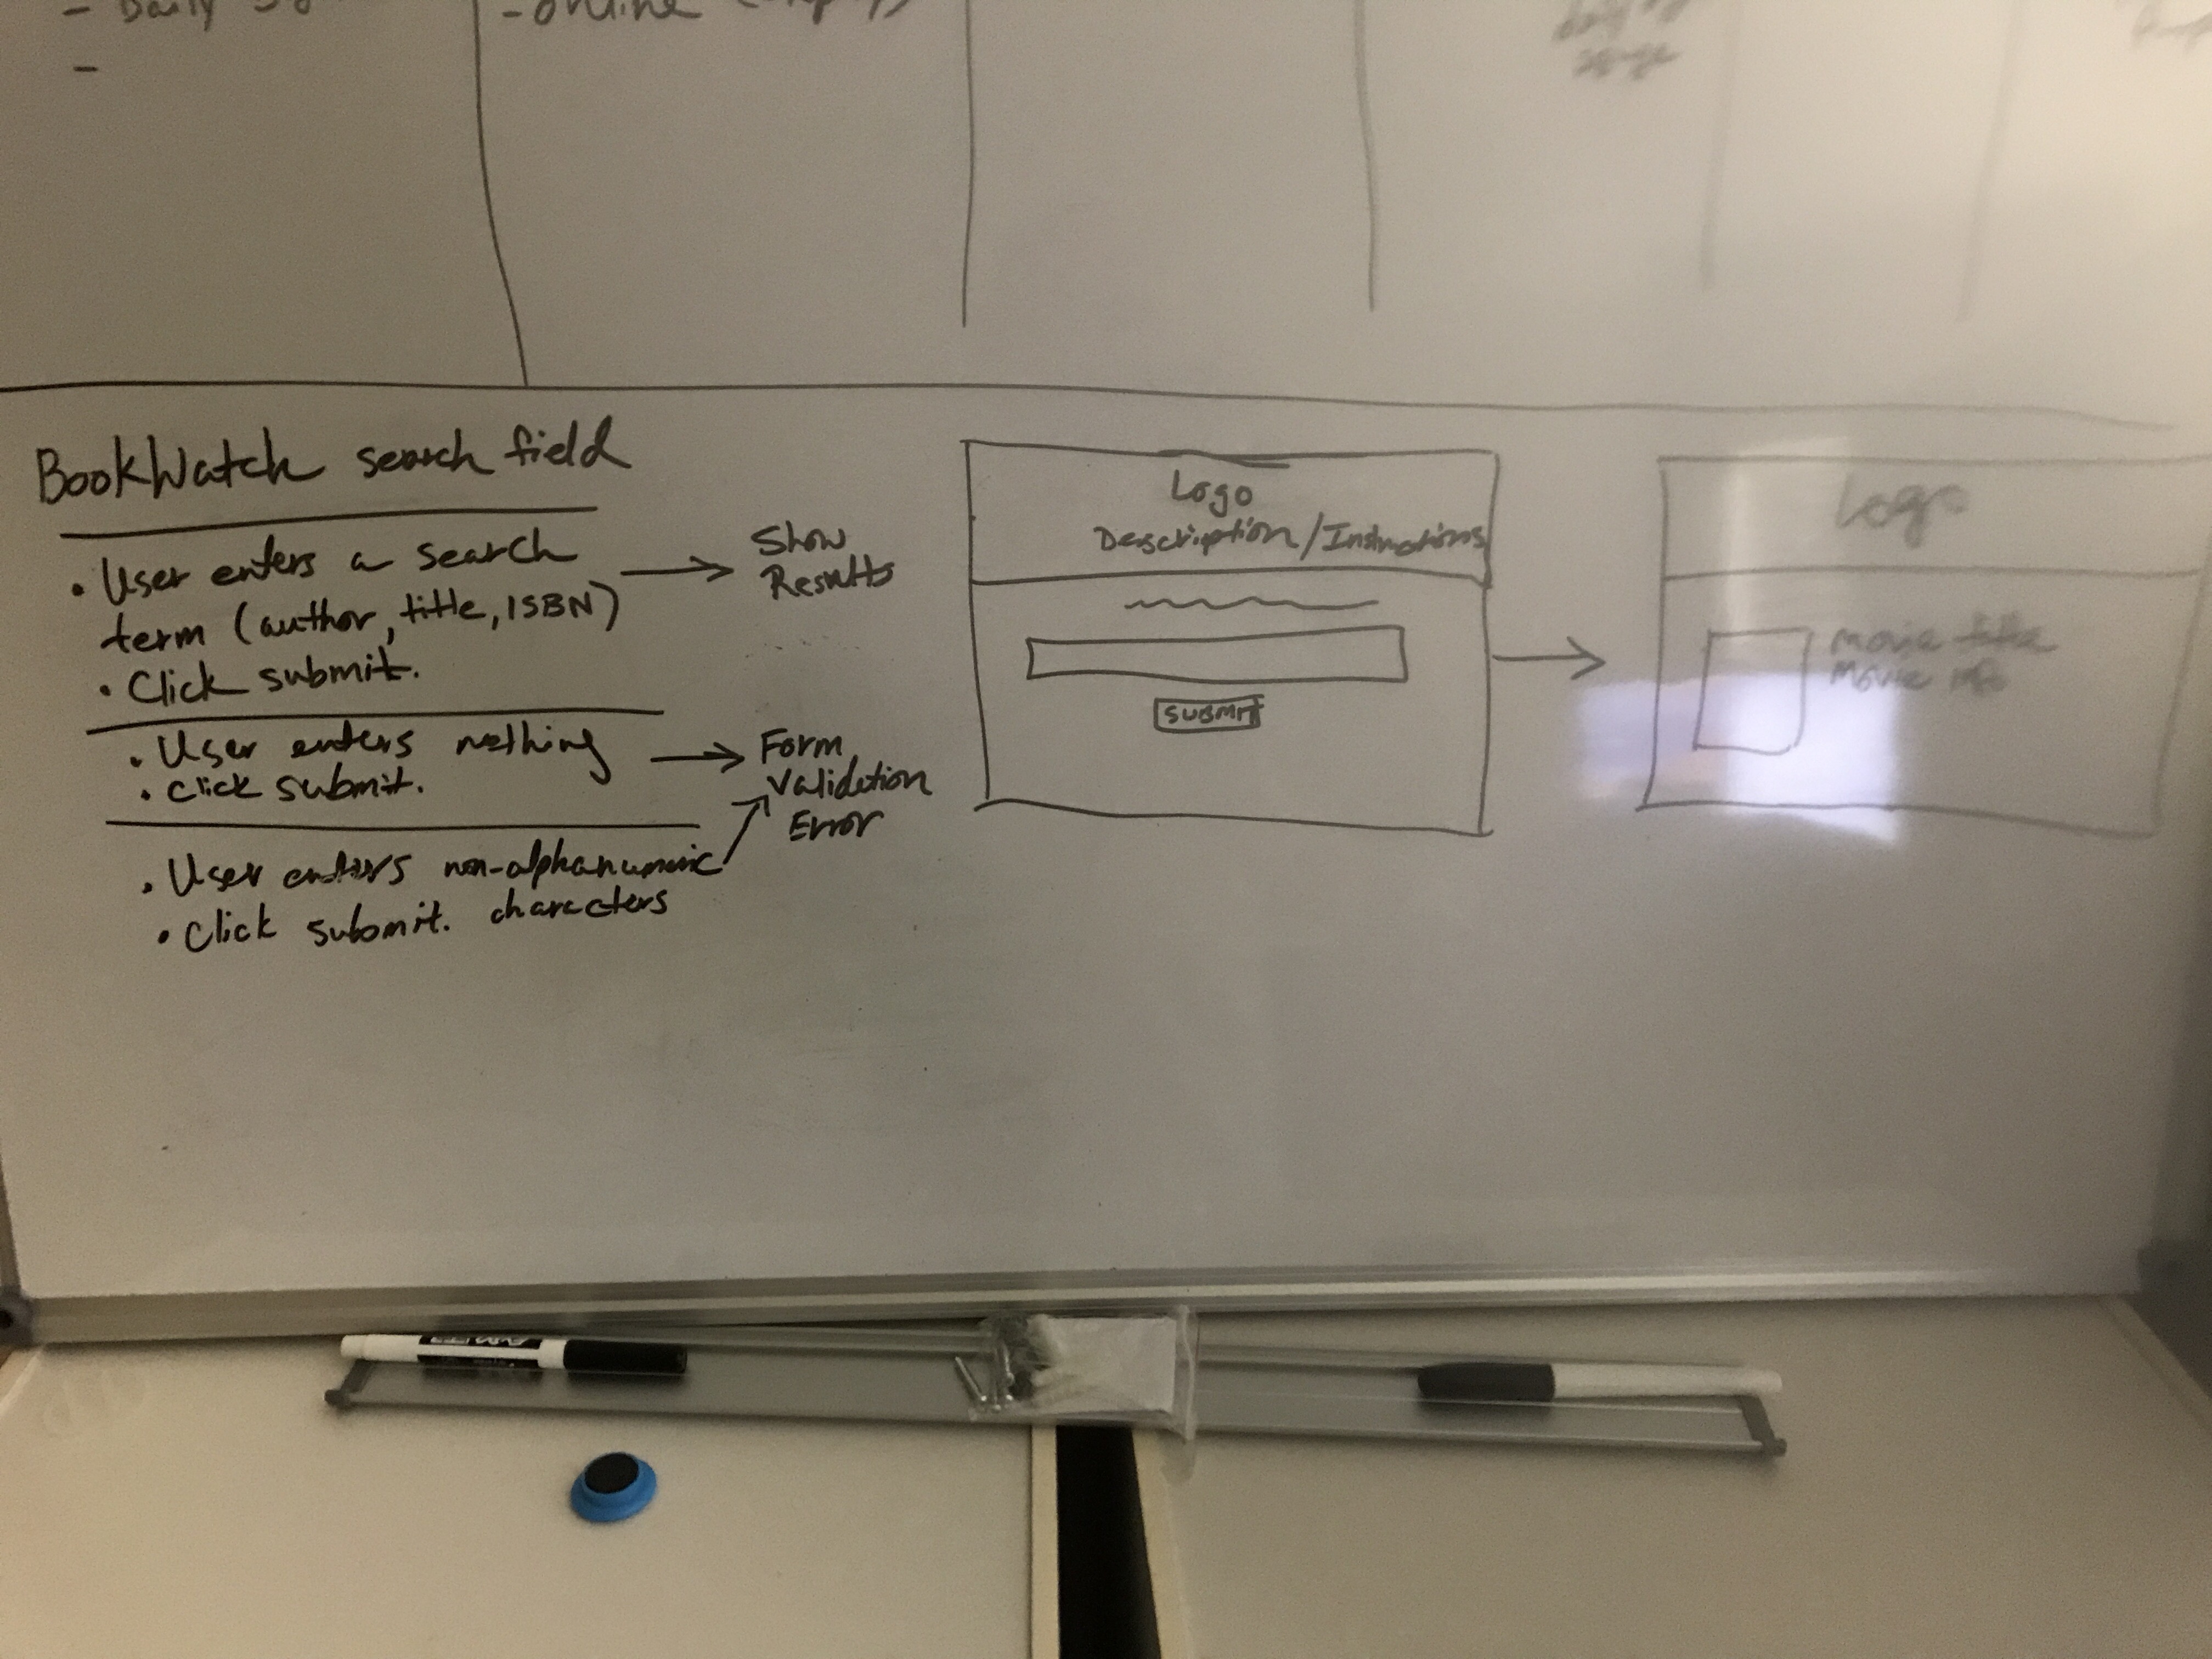 - Daily
- online
-
BookWatch search field
• User enters a search
term (author, title, ISBN)
• Click submit.
Show
Results
• User enters nothing
• click submit.
Form
Validation
Error
• User enters non-alphanumeric
characters
• Click submit.
Logo
Description/Instructions
SUBMIT
Logo
movie title
movie info